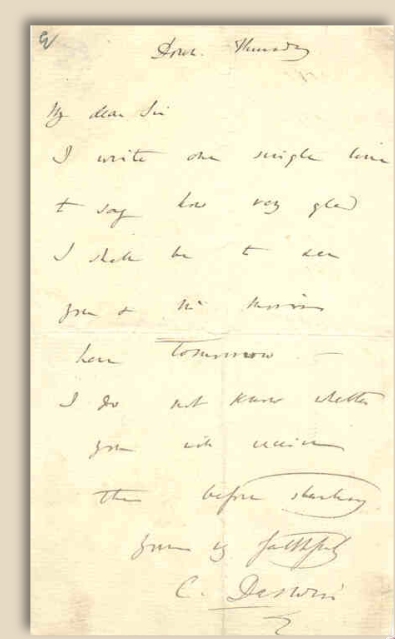 Down. Thursday
My dear Sir
I write one single line
to say how very glad
I shall be to see
you & Mr Morris
here tomorrow —
I do not know whether
you will receive
this before starting
yours very faithfully
C. Darwin